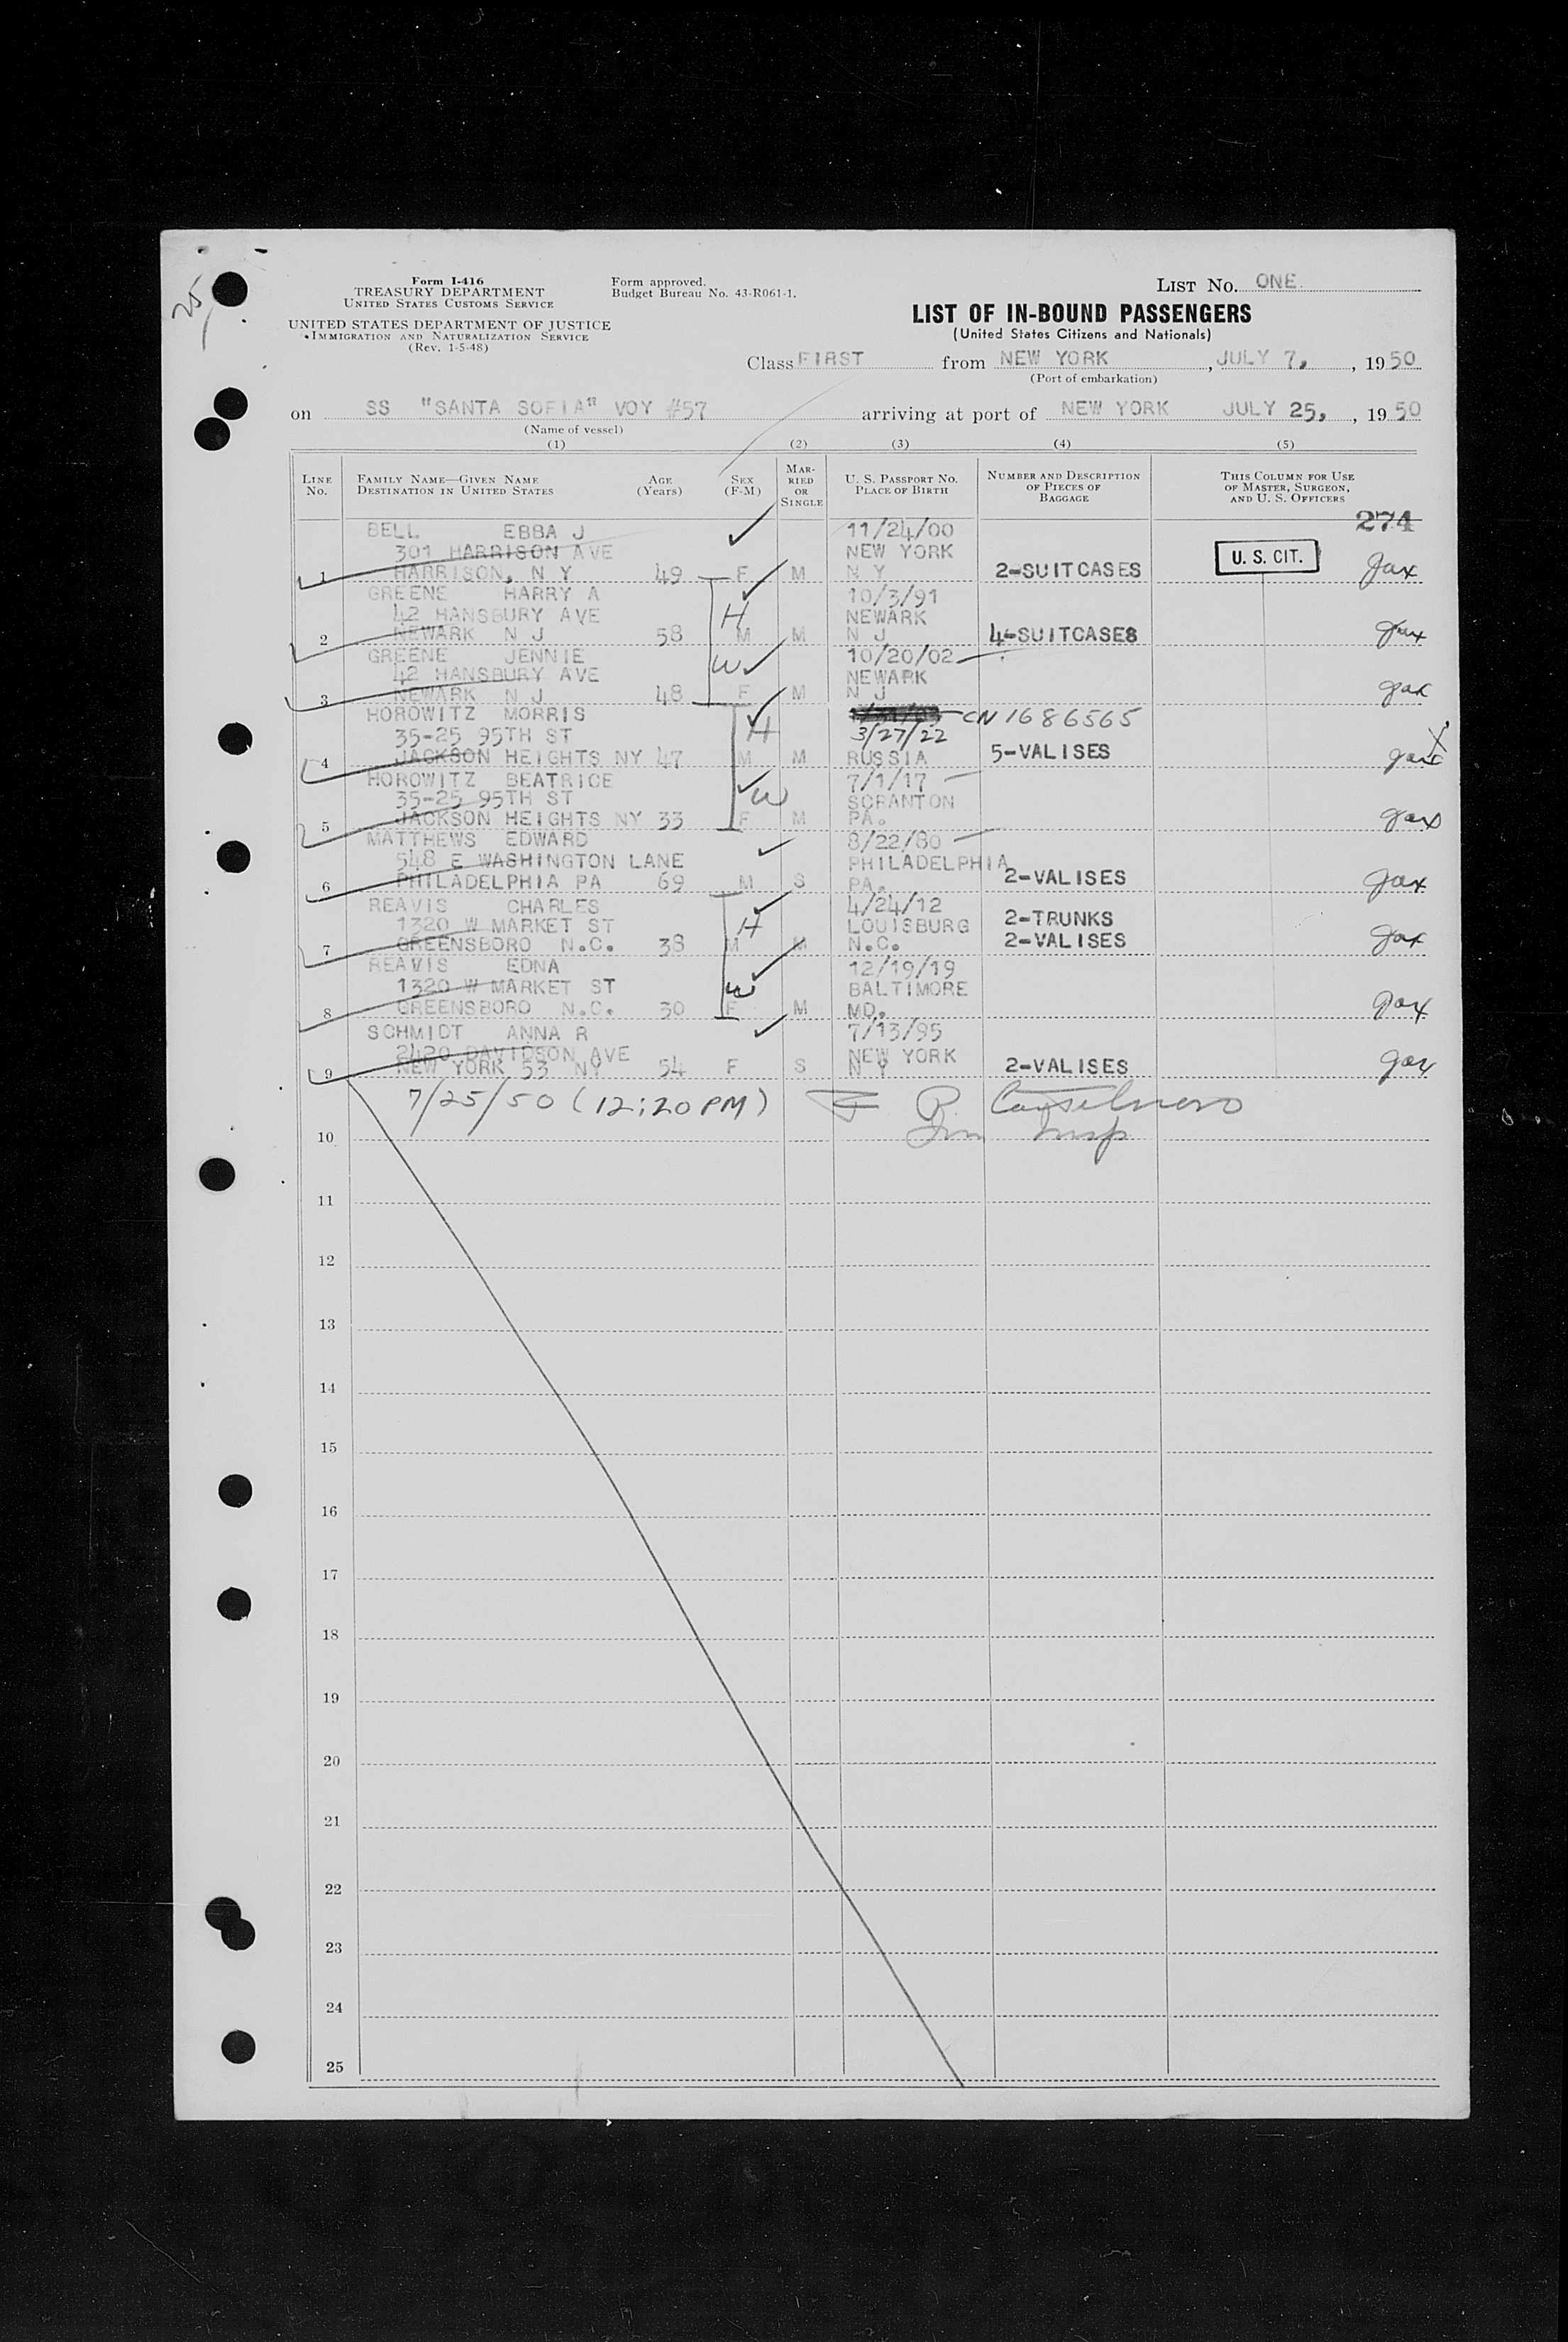 25
Form I-416
TREASURY DEPARTMENT
UNITED STATES CUSTOMS SERVICE
UNITED STATES DEPARTMENT OF JUSTICE
IMMIGRATION AND NATURALIZATION SERVICE
(Rev. 1-5-48)
Form approved.
Budget Bureau No. 43-R061-1.
LIST NO. ONE
LIST OF IN-BOUND PASSENGERS
(United States Citizens and Nationals)
Class FIRST from NEW YORK, JULY 7, , 1950
(Port of embarkation)
on SS "SANTA SOFIA" VOY #57 arriving at port of NEW YORK JULY 25, , 1950
(Name of vessel)
(1) (2) (3) (4) (5)
LINE NO.
FAMILY NAME—GIVEN NAME
DESTINATION IN UNITED STATES
AGE (Years)
SEX (F-M)
MARRIED OR SINGLE
U. S. PASSPORT NO.
PLACE OF BIRTH
NUMBER AND DESCRIPTION OF PIECES OF BAGGAGE
THIS COLUMN FOR USE OF MASTER, SURGEON, AND U. S. OFFICERS
274
BELL EBBA J 11/24/00
301 HARRISON AVE NEW YORK U. S. CIT.
1 HARRISON, N Y 49 F M N Y 2-SUITCASES
GREENE HARRY A 10/3/91
42 HANSBURY AVE H NEWARK
2 NEWARK N J 58 M M N J 4-SUITCASES
GREENE JENNIE W 10/20/02
42 HANSBURY AVE NEWARK
3 NEWARK N J 48 F M N J
HOROWITZ MORRIS CN 1686565
35-25 95TH ST H 3/27/22
4 JACKSON HEIGHTS NY 47 M M RUSSIA 5-VALISES
HOROWITZ BEATRICE 7/1/17
35-25 95TH ST W SCRANTON
5 JACKSON HEIGHTS NY 33 F M PA.
MATTHEWS EDWARD 8/22/80
548 E WASHINGTON LANE PHILADELPHIA
6 PHILADELPHIA PA 69 M S PA. 2-VALISES
REAVIS CHARLES 4/24/12
1320 W MARKET ST H LOUISBURG 2-TRUNKS
7 GREENSBORO N.C. 38 M M N.C. 2-VALISES
REAVIS EDNA 12/19/19
1320 W MARKET ST W BALTIMORE
8 GREENSBORO N.C. 30 F M MD.
SCHMIDT ANNA R 7/13/95
2420 DAVIDSON AVE NEW YORK
9 NEW YORK 53 NY 54 F S N Y 2-VALISES
7/25/50 (12:20 PM)
Imm Insp
10
11
12
13
14
15
16
17
18
19
20
21
22
23
24
25